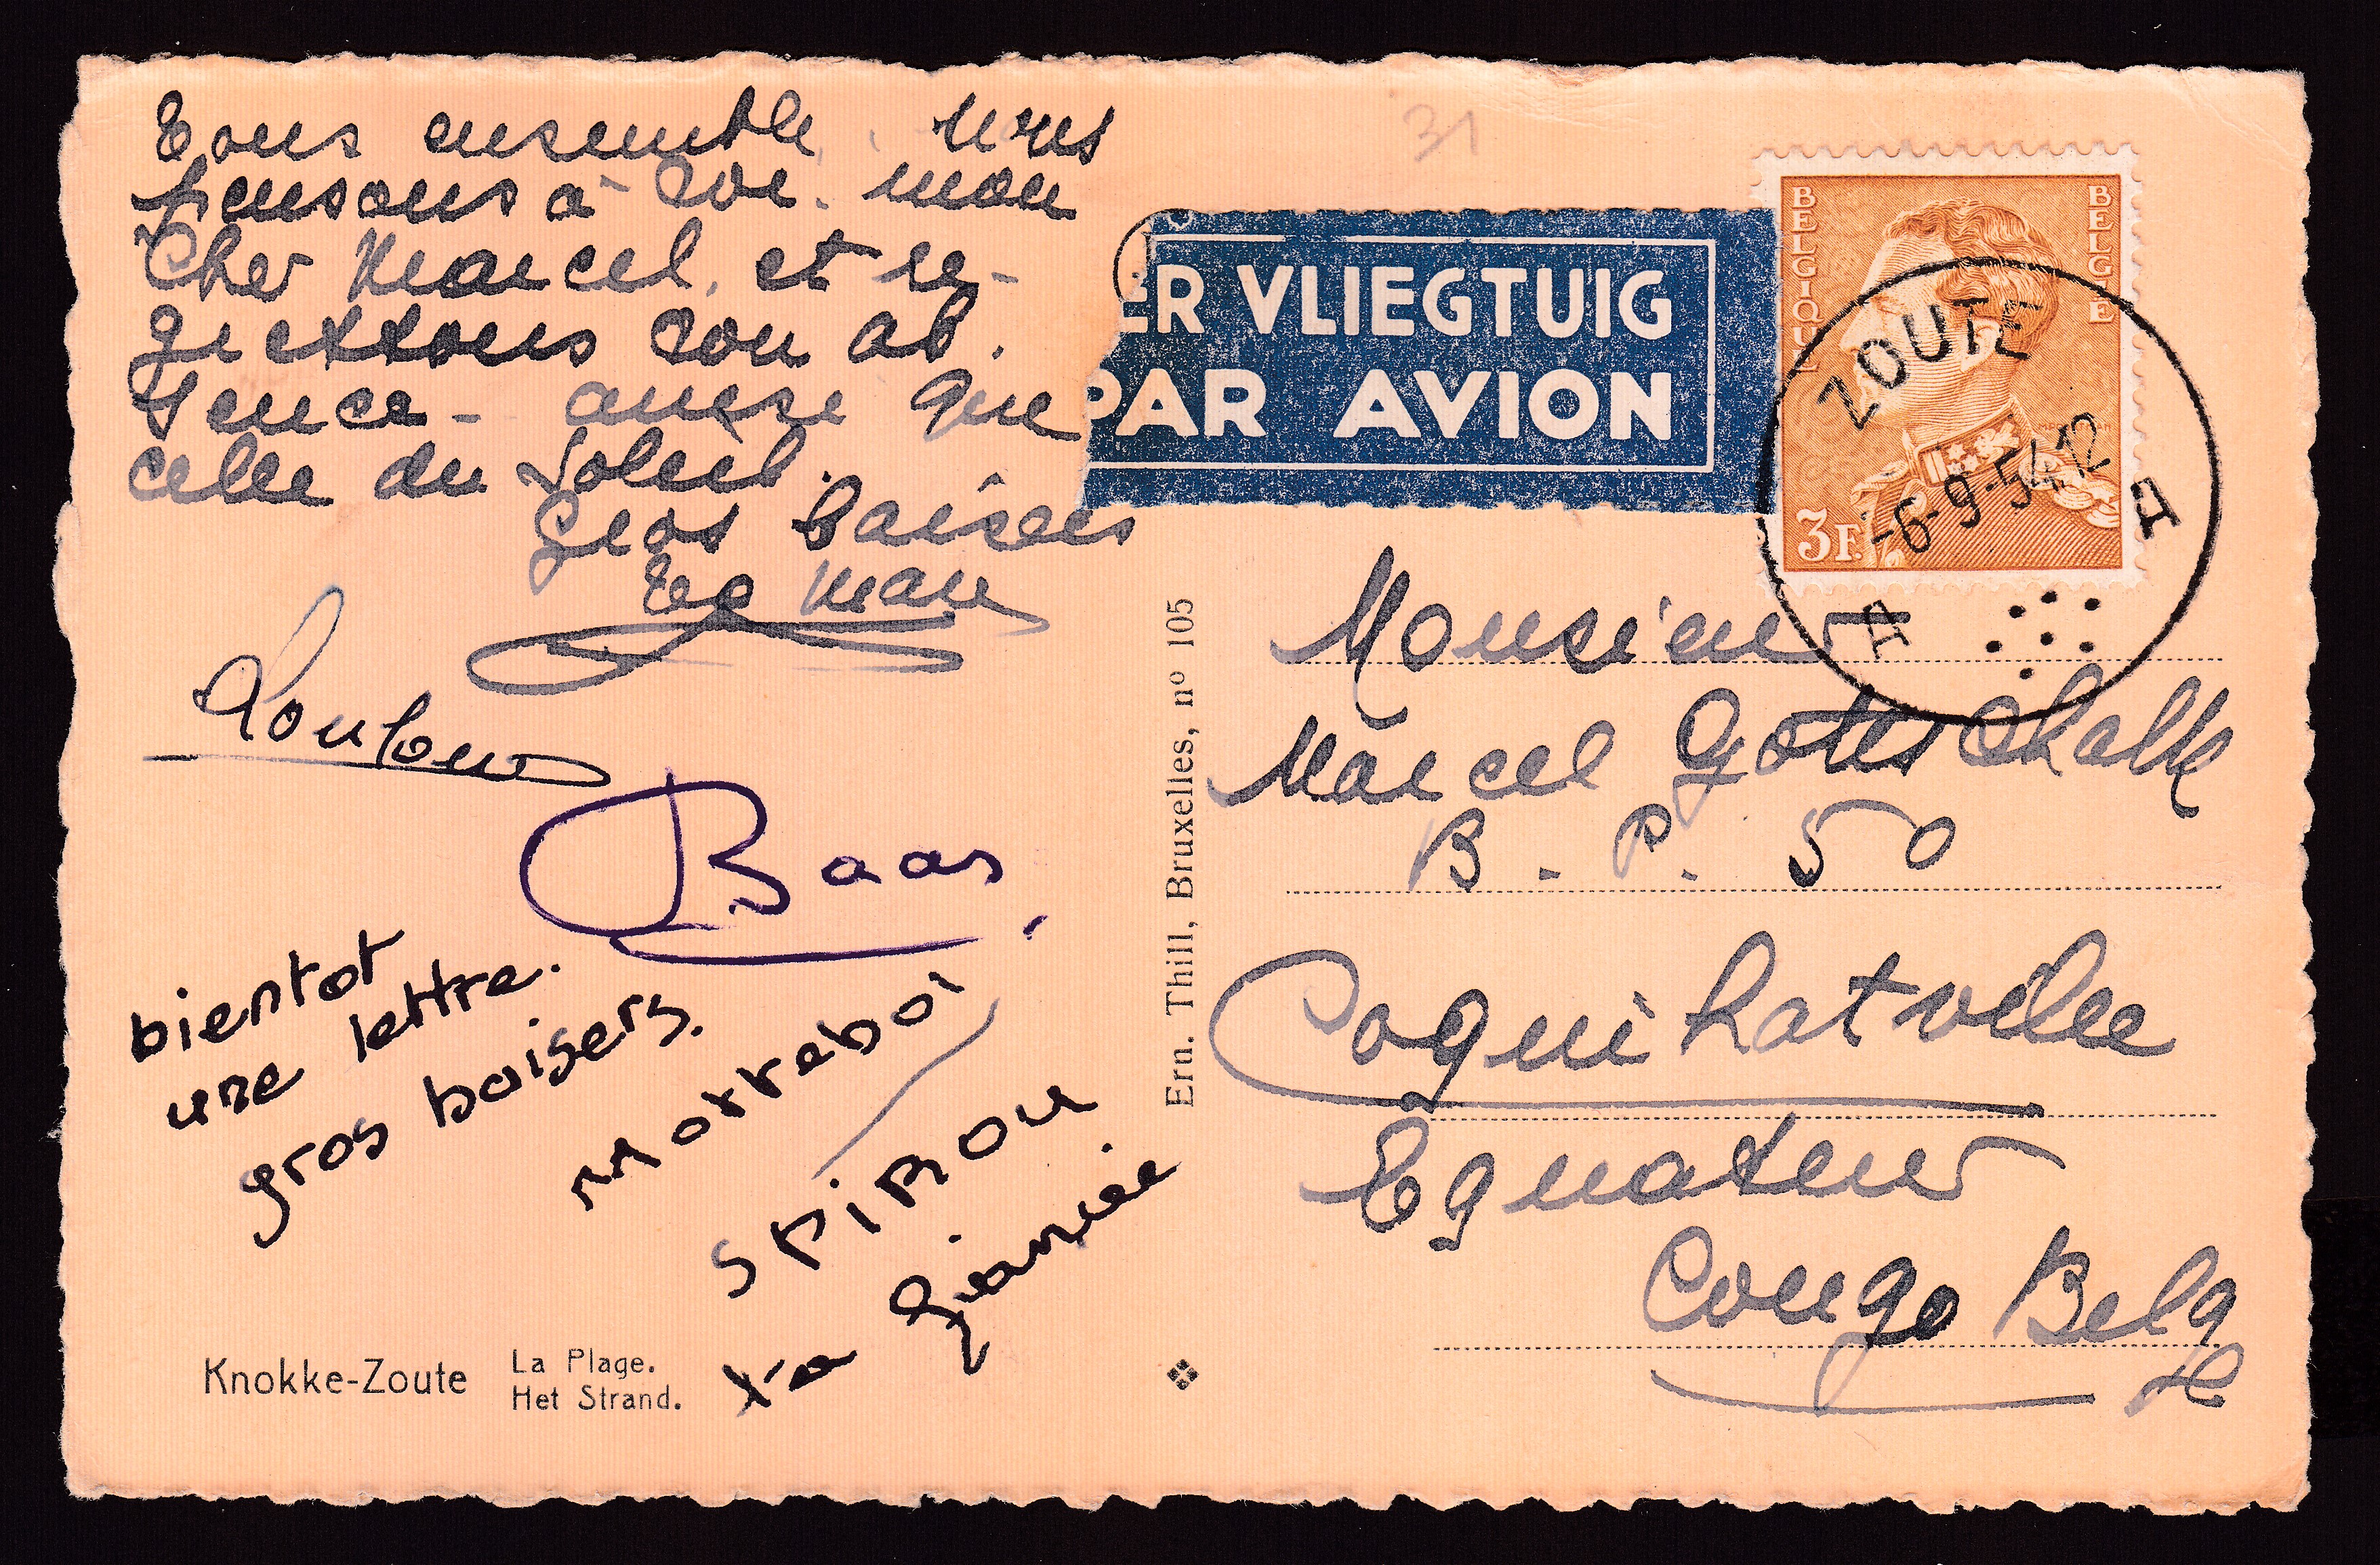 Tous ensemble, nous
pensons à toi. mon
Cher Marcel, et re-
grettons ton ab.
sence - ainsi que
celle du Soleil.
Gros baisers
Ta Man
Loulou
Baas.
bientot
une lettre.
gros baisers.
SPIROU
ta fiancée
Knokke-Zoute
La Plage.
Het Strand.
Ern. Thill, Bruxelles, nº 105
31
ER VLIEGTUIG
PAR AVION
BELGIQUE
BELGIE
3F.
ZOUTE
-6-9-54 12
Monsieur
Marcel Gottschalk
B. P. 50
Coquilhatville
Equateur
Congo Belg
e